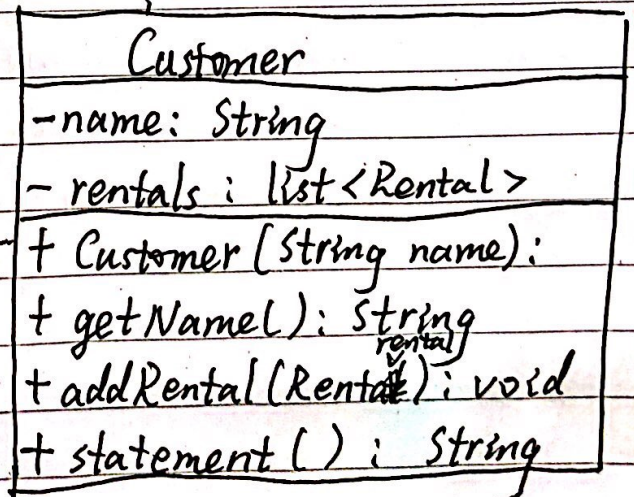 Customer
-name: String
- rentals : list<Rental>
+ Customer (String name):
+ getName(): String
+ addRental (Rental rental) : void
+ statement () : String